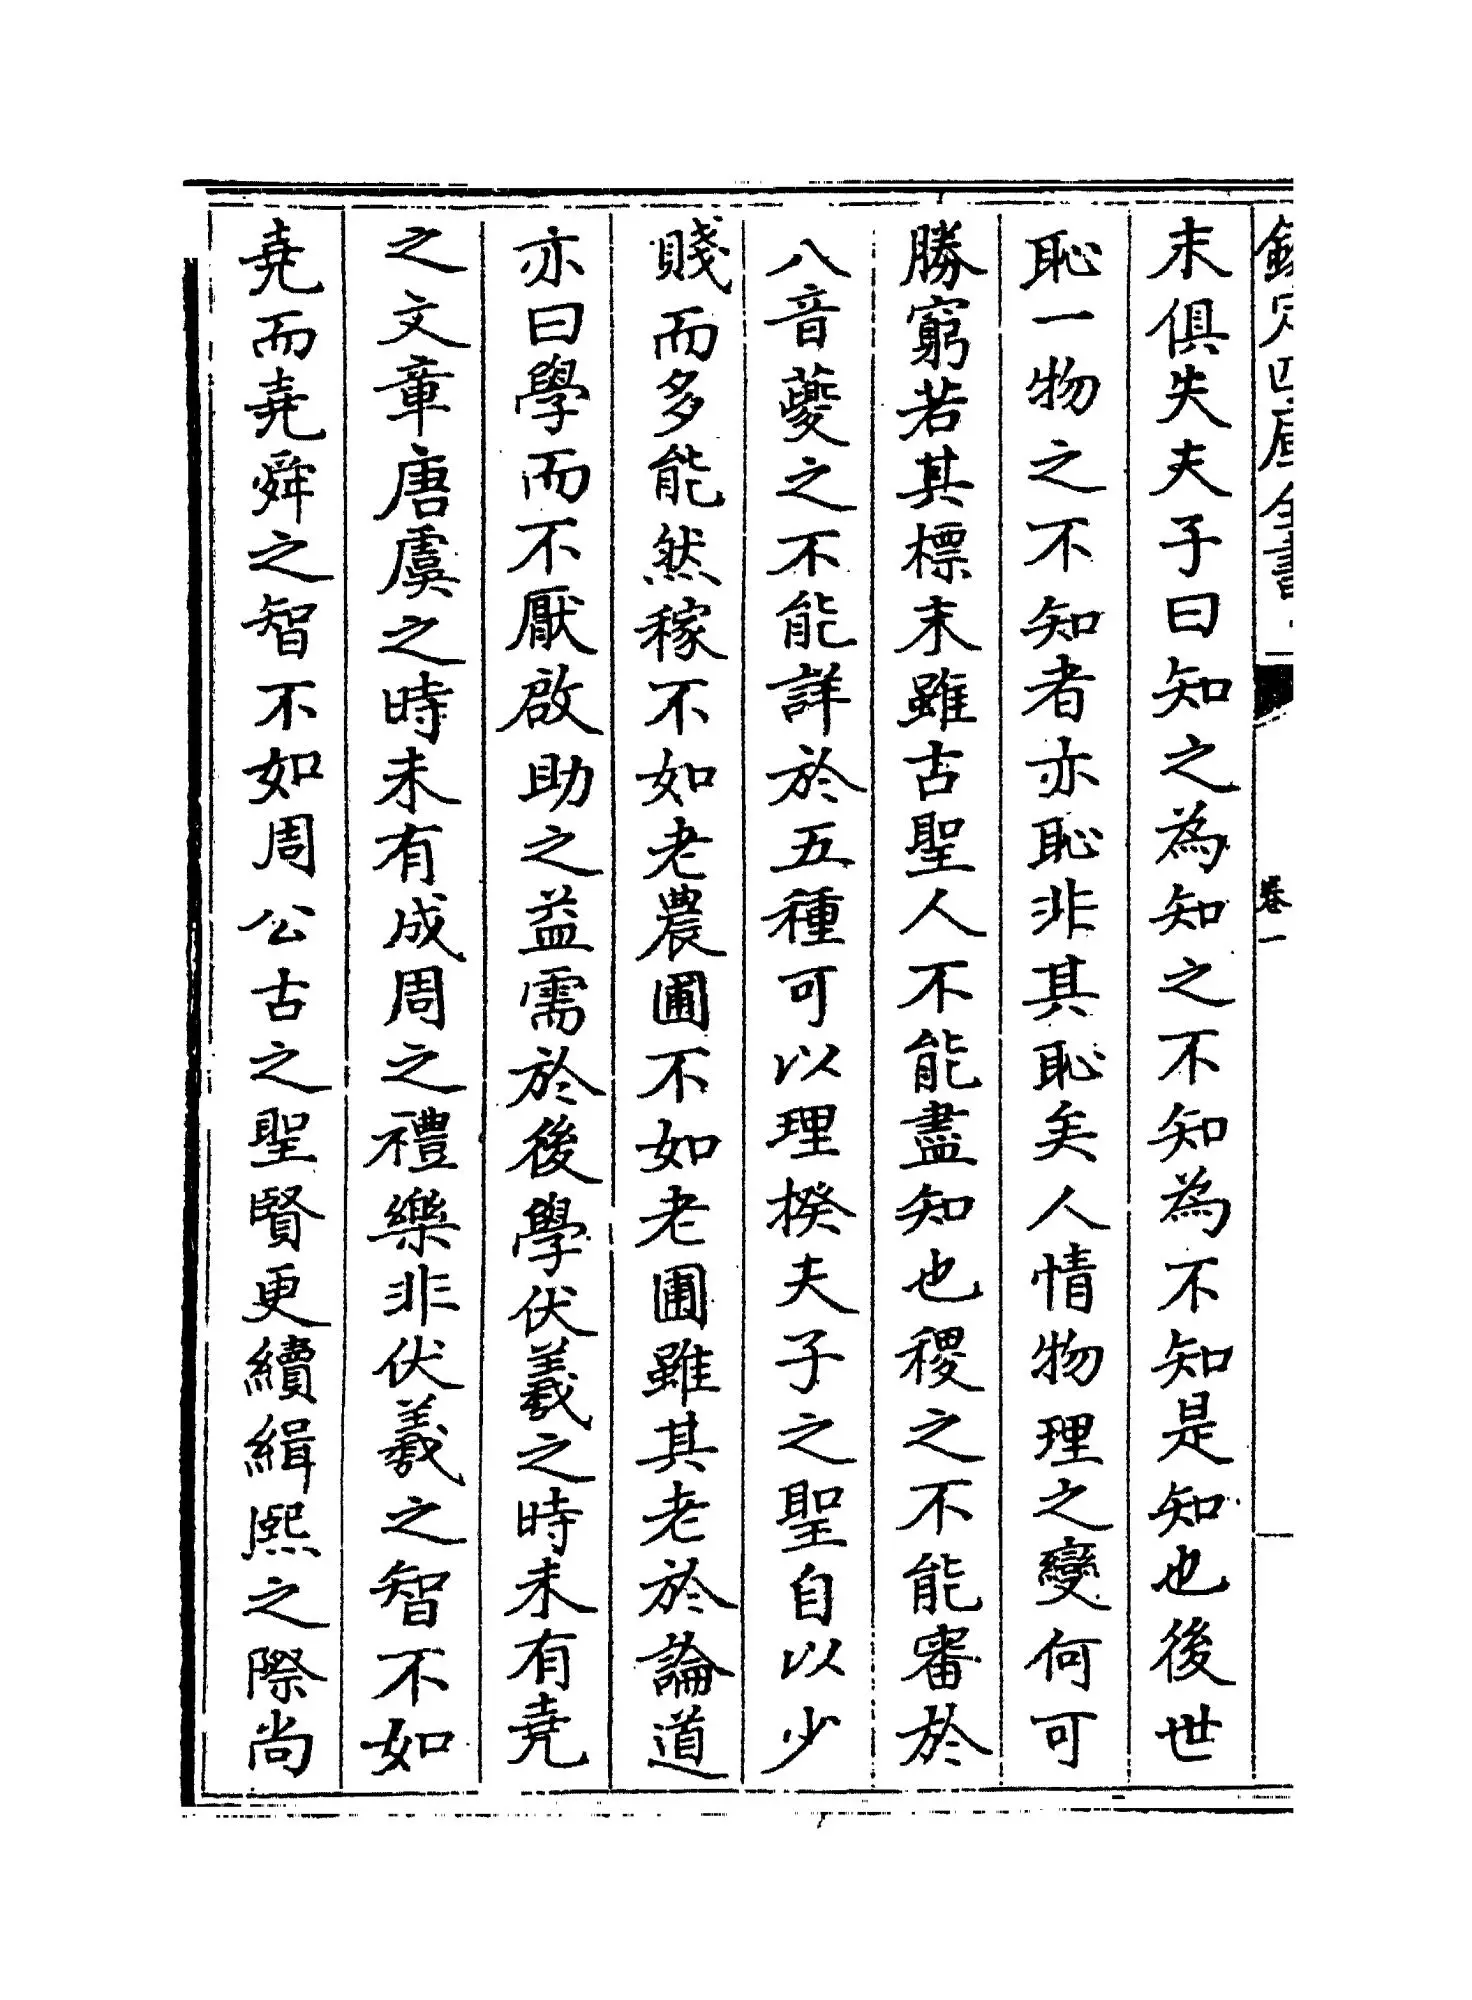 欽定四庫全書
卷一
末俱失夫子曰知之為知之不知為不知是知也後世
恥一物之不知者亦恥非其恥矣人情物理之變何可
勝窮若其標末雖古聖人不能盡知也稷之不能審於
八音夔之不能詳於五種可以理揆夫子之聖自以少
賤而多能然稼不如老農圃不如老圃雖其老於論道
亦曰學而不厭啟助之益需於後學伏羲之時未有堯
之文章唐虞之時未有成周之禮樂非伏羲之智不如
堯而堯舜之智不如周公古之聖賢更續緝熙之際尚